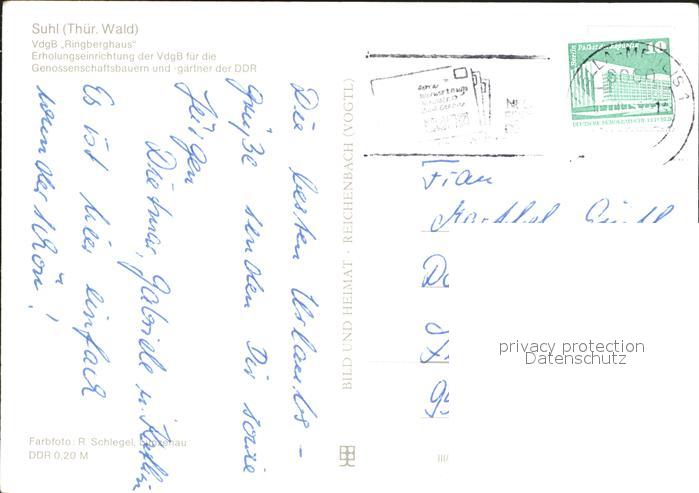 Suhl (Thür. Wald)
VdgB „Ringberghaus"
Erholungseinrichtung der VdgB für die
Genossenschaftsbauern und -gärtner der DDR
Die besten Urlaubs-
grüße senden Dir sowie
Jürgen
Dietmar, Gabriele u.
Es ist hier einfach
wunderschön!
Farbfoto: R. Schlegel,
DDR 0,20 M
BILD UND HEIMAT · REICHENBACH (VOGTL)
III/
Berlin Palast der Republik 10
DEUTSCHE DEMOKRATISCHE REPUBLIK
Frau
privacy protection
Datenschutz